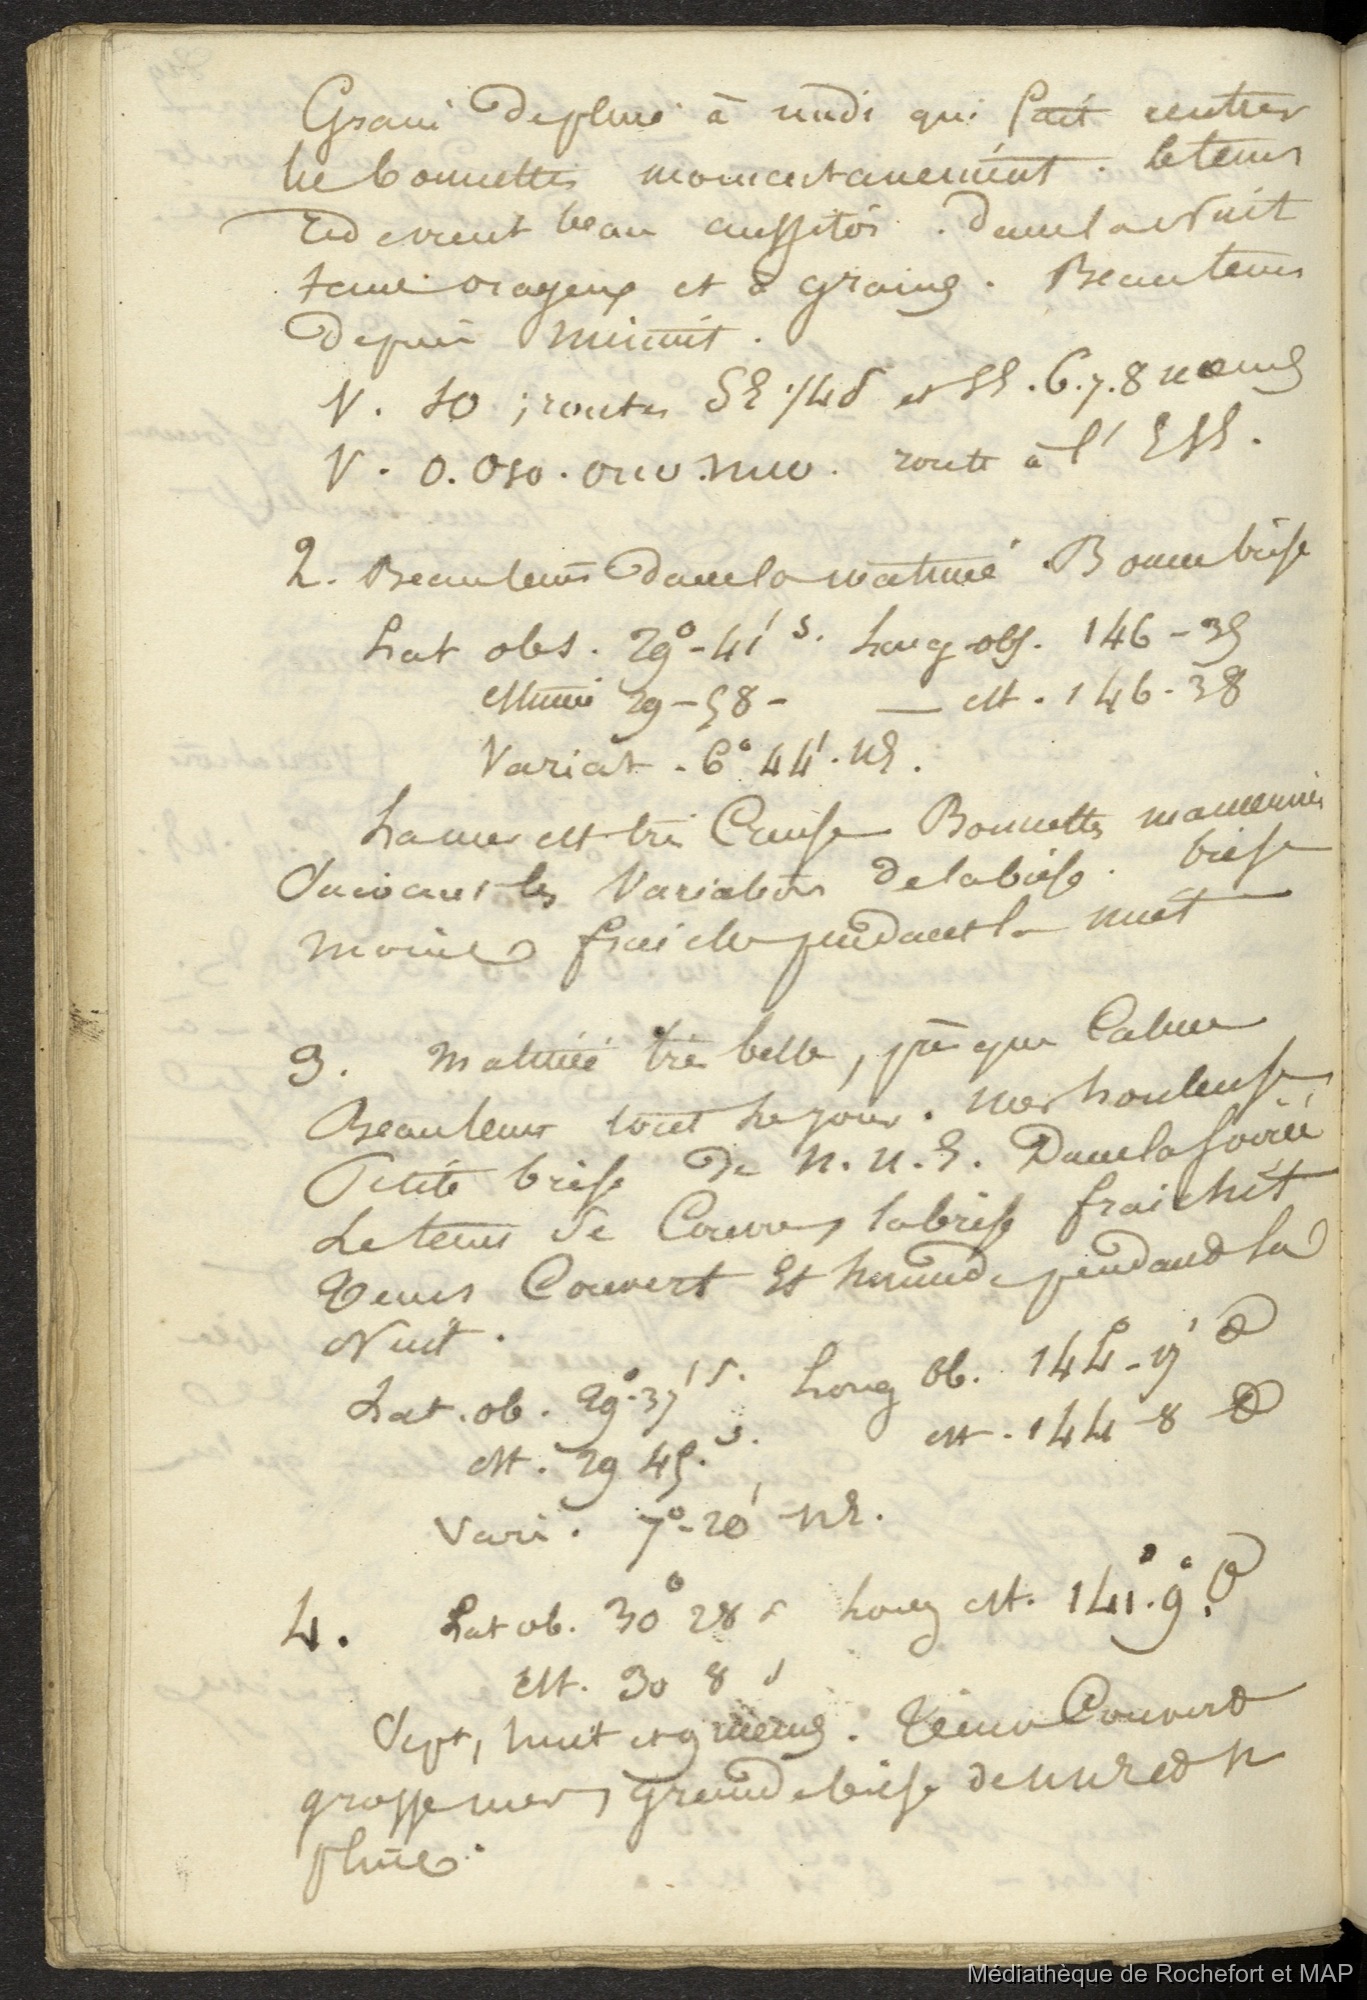 Grain de pluie à midi qui fait rentrer
les bonnettes momentanement. le tems
redevient beau aussitôt. Dans la Nuit
tems orageux et à grains. Beau tems
depuis minuit.
V. SO; routes SE 1/4 S et SE. 6.7.8 nœuds
V. O. OSO. ONO. NNO. route à l'ESE.
2. Beau tems dans la matinée. Bonne brise
Lat obs. 29°-41' S. Long obs. 146-35
estimée 29-58- — est. 146-38
Variat. 6° 44'. NE.
La mer est très Creuse Bonnettes
Suivant les Variations de la brise. brise
moins fraiche pendant la nuit
3. Matinée très belle, presque Calme
Beau tems tout le jour. Mer houleuse
Petite brise de N.N.E. Dans la Soirée
Le tems se Couvre, la brise fraichit
Tems Couvert Et humide pendant la
Nuit.
Lat. ob. 29°-37' S. Long ob. 144°-17' O
est. 29 45. S. est. 144-8 O
Vari. 7°-20' NE.
4. Lat ob. 30° 28 S Long est. 141°.9°. O
Est. 30 8 S
Sept, huit et 9 nœuds. Tems Couvert
grosse mer, grande brise de NNE et N
pluie.
Médiathèque de Rochefort et MAP